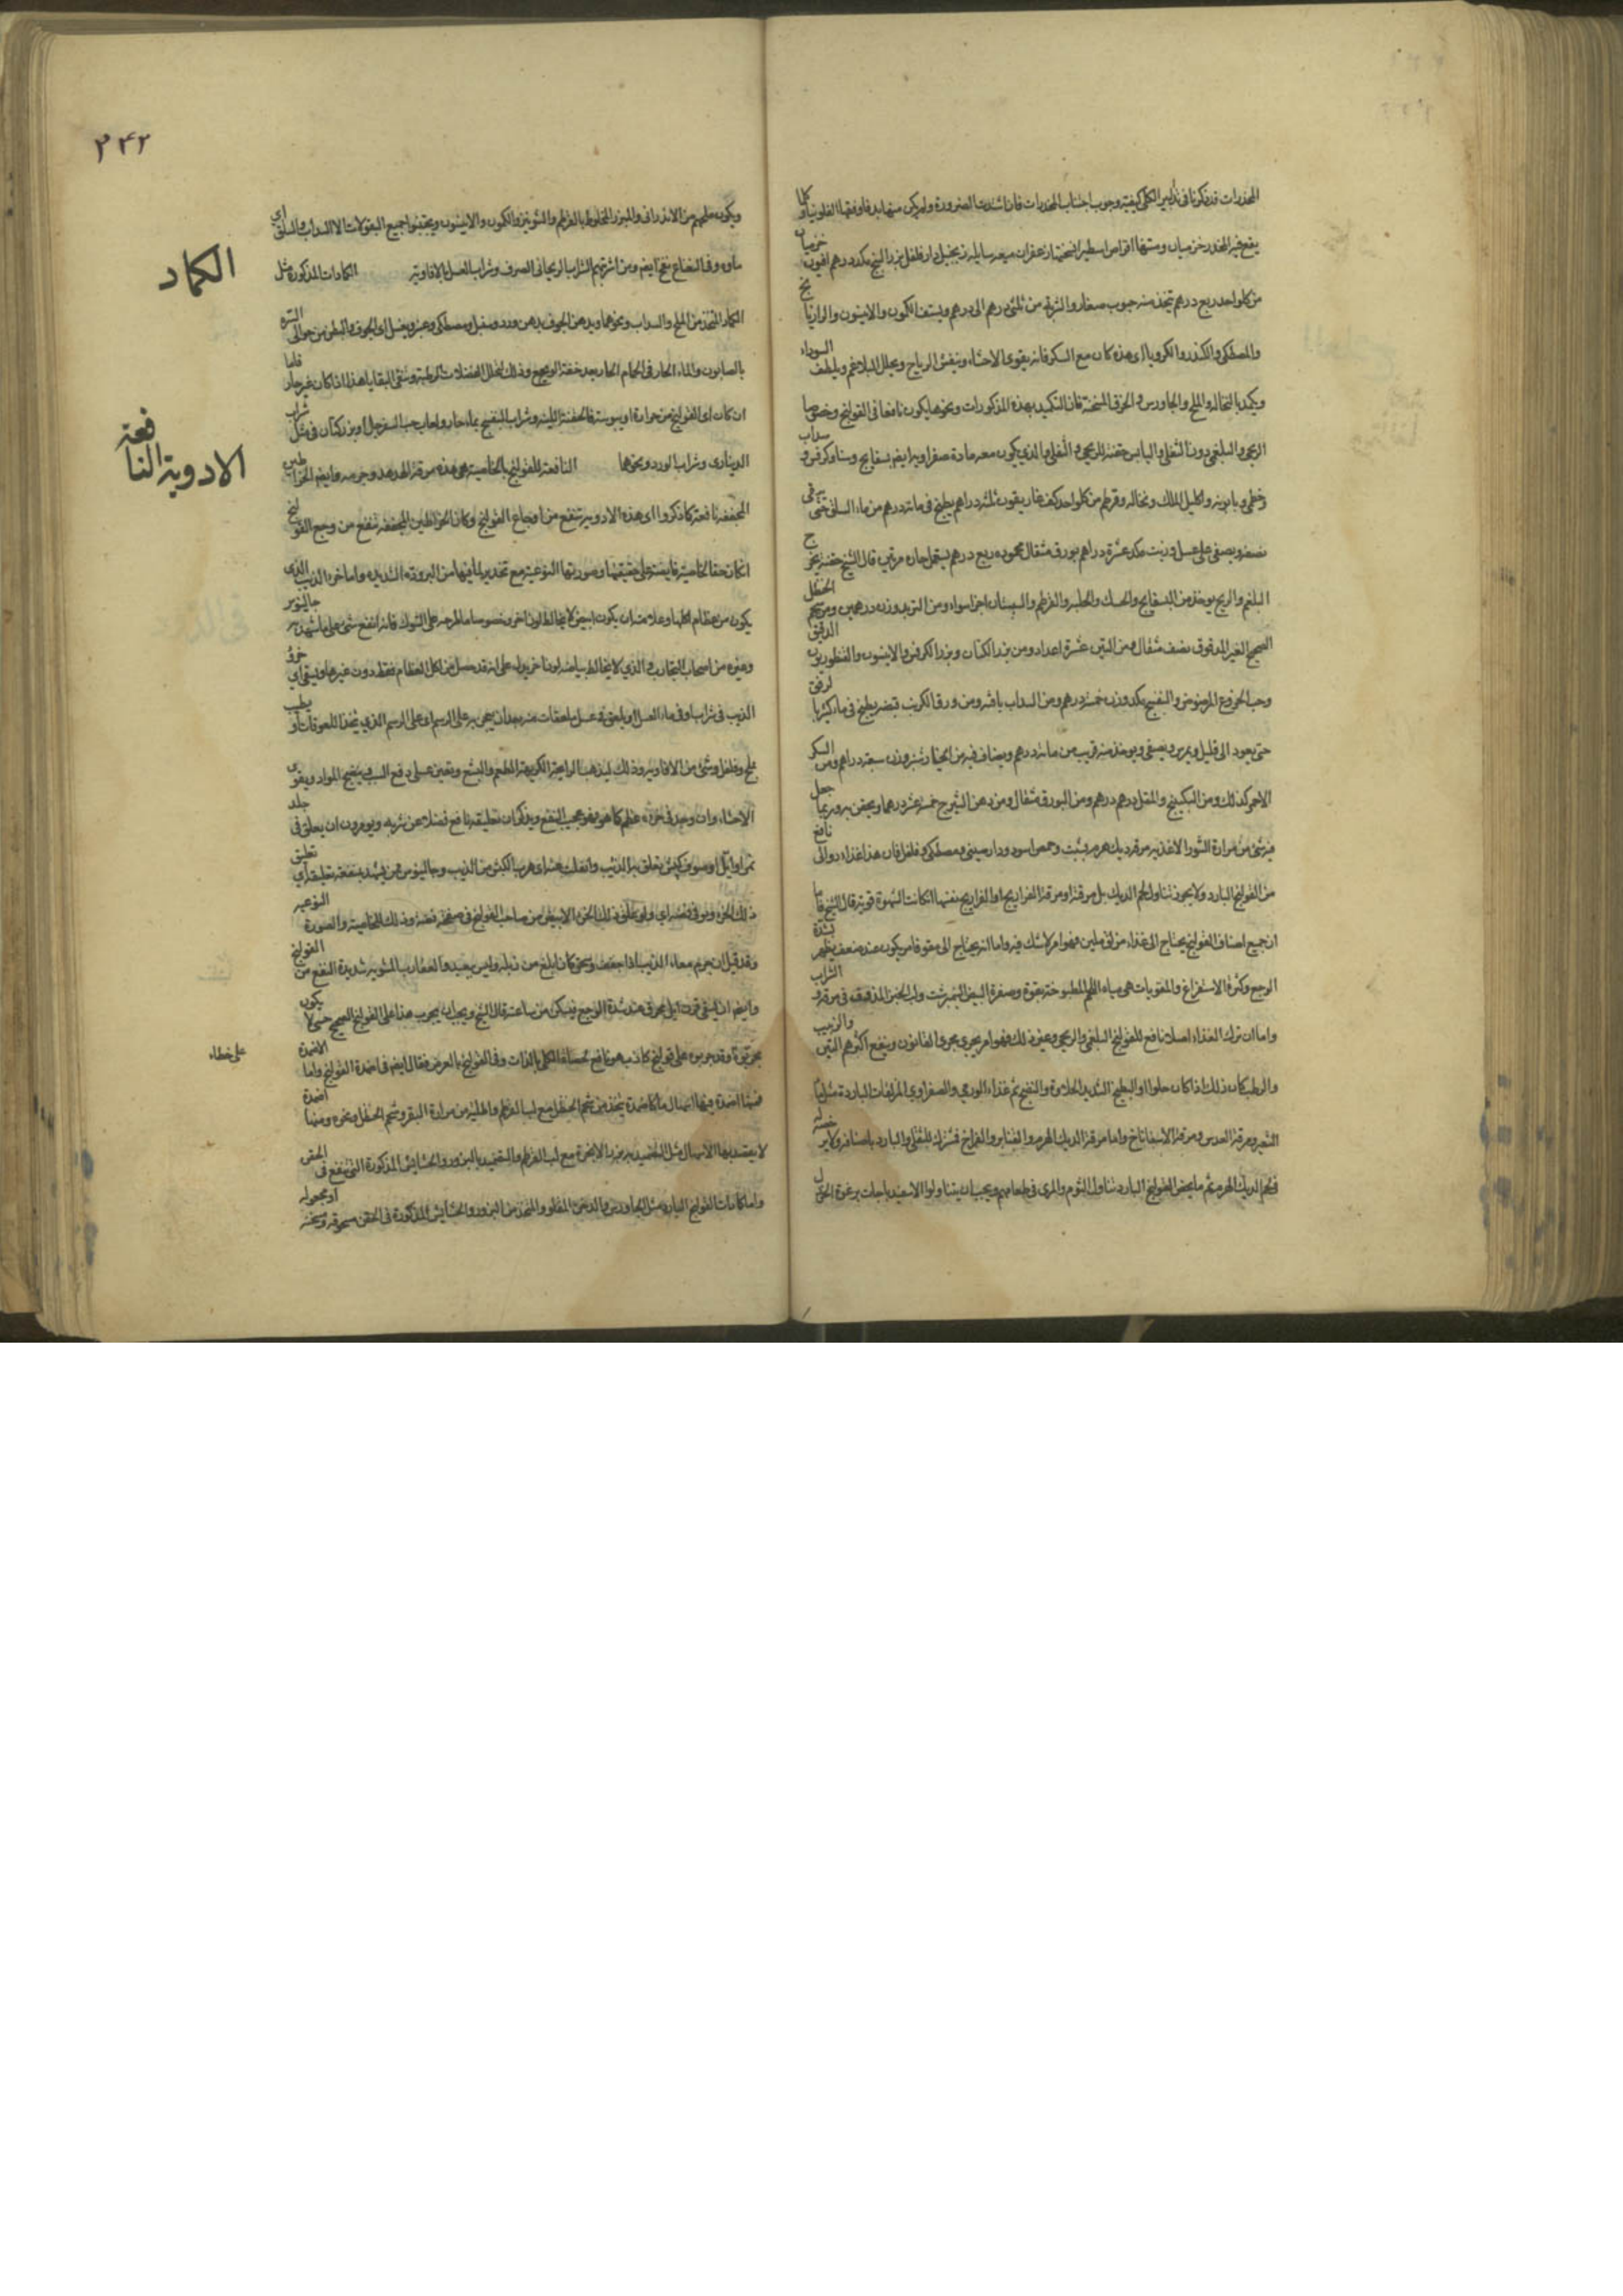 المخدرات قد ذكرنا فى تدبير الكلى كيفية وجوب اجتناب المخدرات فان اشتدت الضرورة ولم يكن منها بد فاوفقها الفلونيا وكلما
يقع فيه المخدر جندبيدستر ومنها اقراص اسطيرا نسختها زعفران ميعه سايله زنجبيل دار فلفل بزر البنج مكد درهم افيون
من كل واحد ربع درهم تتخذ منه حبوب صغار والشربة من ثلثى درهم الى درهم ويستف الكمون والانيسون والرازيانج
والمصطكى والكندر والكرويا اى هذه كان مع السكر فانه يقوى الاحشاء وينفش الرياح ويحلل البلاغم ويلطف السوداء
ويكمد بالنخالة والملح والجاورس والخرق المسخنة فان التكميد بهذه المذكورات ونحوها يكون نافعا فى القولنج وخصوصا
الريحى والبلغمى دون الثفلى واليابس حقنة للريحى والثفلى والذى يكون معه مادة صفراوية ايضم بسفايج وسنا وكرفس وسداب
وخطمى وبابونه واكليل الملك ونخاله وقرطم من كل واحد كف غاريقون ثلثه دراهم يطبخ فى مائة درهم من ماء السلق حتى يبقى
نصفه ويصفى على عسل وزيت مكد عشرة دراهم بورق مثقال محموده ربع درهم يستعمل حاره مرتين قال الشيخ حقنة تخرج
البلغم والريح يوخذ من البسفايج والحسك والحلبة والقرطم والسبستان اجزا سواء ومن التربد وزن درهمين ومن شحم الحنظل
الصحيح الغير المدقوق نصف مثقال ومن التين عشرة اعداد ومن بزر الكتان وبزر الكرفس والانيسون والقنطوريون الدقيق
وحب الخروع المرضوض والبنفسج مكد وزن خمسة درهم ومن السداب باقه ومن ورق الكرنب قبضه يطبخ فى ماء كثير بالرفق
حتى يعود الى قليل ويمرس ويصفى ويوخذ منه قريب من مائة درهم ويضاف فيه من الخيار شنبر وزن سبعة دراهم ومن السكر
الاحمر كذلك ومن السكبينج والمقل درهم درهم ومن البورق مثقال ومن دهن الشيرج خمسة عشر درهما ويحقن به وربما جعل
فيه شئ من مرارة الثور الاغذيه مرقة ديك هرم بشبت وحمص اسود ودارصينى ومصطكى وفلفل فان هذا غذاء دوائى نافع
من القولنج البارد ولا يجوز تناول لحم الديك بل مرقه او مرقة الفراريج او الفراريج نفسها ان كانت الشهوة قوية قال الشيخ فاما
ان جميع اصناف القولنج يحتاج الى غذاء مزلق ملين فهو امر لا شك فيه واما انه يحتاج الى مقو فامر يكون عند ضعف يظهر بشدة
الوجع وكثرة الاستفراغ والمقويات هى مياه اللحم المطبوخة بقوة وصفرة البيض النيمبرشت ولب الخبز المدقوق فى مرقه والشراب
واما ان ترك الغذاء اصلا نافع للقولنج البلغمى والريحى وغير ذلك فهو امر يجرى مجرى القانون وينفع اكثرهم التين والزبيب
والرطب كان ذلك اذا كان حلوا او البطيخ الشديد الحلاوة والنضج ثم غذاء الورمى والصفراوى المزلقات الباردة مثل ماء
الشعير ومرقة العدس ومرقة الاسفاناخ واما مرقة الديك الهرم والقنابر والفراخ فتنزل للثفلى والبارد باصنافه ولا يرخص له
فى لحم الديك الهرم ثم ما يخص القولنج البارد تناول الثوم والمرى فى طعامهم ويجب ان يتناولوا الاسفيذباجات برغوة الخردل
٢٤٢
ويكون ملحهم من الاندرانى والمبزر المخلوط بالقرطم والشونيز والكمون والانيسون ويجتنبوا جميع البقولات الا السداب والسلق اى
ماءه وفى النعناع نفخ ايضم ومن اشربتهم الشراب الريحانى الصرف وشراب العسل بالافاوية الكمادات المذكورة مثل
الكماد
الكماد المتخذ من الملح والسداب ونحوهما ويدهن الجوف بدهن ورد وسنبل ومصطكى وعنبر ويغسل اى الجوف والبطن من حوالى السرة
بالصابون والماء الحار فى الحمام الحار بعد خفة الوجع وذلك لتحلل الفضلات الرطبة وتنقى البقايا هذا اذا كان غير حار فاما
ان كان اى القولنج من حرارة او يبوسة فالحقنة اللينة وشراب البنفسج بماء حار ولعاب حب السفرجل او بزر كتان فى مثل شراب
الدينارى وشراب الورد ونحوها النافعة للقولنج بالخاصية هى هذه مرقة الهدهد وجرمه وايضم الخراطين
الادوية النافعة
المجففة نافعة كما ذكروا اى هذه الادوية تنفع من اوجاع القولنج وكان الخراطين المجففة تنفع من وجع القولنج
ان كان حقا لخاصية فايضة على حقيقتها وصورتها النوعية مع تخدير لما فيها من البرودة الشديدة واما خرء الذيب الذى
يكون من عظام اكلها وعلامته ان يكون ابيض لا يخالط لون اخر وخصوصا ما طرحه على الشوك فانه انفع شئ على ما شهد به جالينوس
وغيره من اصحاب التجارب والذى لا يخالط بياضه لونا اخر يدل على انه قد حصل من اكل العظام فقط دون غيرها ويسقى اى خرؤ
الذيب فى شراب او فى ماء العسل او يلعق فى عسل ملعقات منه بعد ان يعجن به على الرسم اى على الرسم الذى يتخذ اللعوقات او يطيب
بملح وفلفل وشئ من الافاويه وذلك ليذهب الرايحة الكريهة الطعم والبشع وتعين على دفع السبب ينضج المواد ويقوى
الاحشاء وان وجد فى خرءه عظم كما هو فهو عجيب النفع ويذكر ان تعليقه نافع فضلا عن شربه ويومرون ان يعلق فى جلد
نمر او ايل او صوف كبش يتعلق به الذيب وانفلت عنه اى هرب الكبش من الذيب وجالينوس ممن يشهد بنفعه تعليقه اى تعليق
ذلك الخرء ولو فى فضه اى ولو علق ذلك الخرء الابيض من صاحب القولنج فى صفحة فضه وذلك للخاصية والصورة النوعيه
وقد قيل ان جرم معاء الذيب اذا جفف وسحق كان ابلغ من زبله وليس ببعيد والعقارب المشوية شديدة النفع من القولنج
وايضم ان يسقى قرن ايل محرق عند شدة الوجع فيسكن من ساعته قال الشيخ ويجب ان يجرب هذا على القولنج الصحيح حتى لا يكون
على خطاء
تجربتهم قد جربوه على قولنج كاذب هو نافع حصاة الكلى بالذات وفى القولنج بالعرض فقال ايضم فى اضمدة القولنج واما الاضمدة
فمنها اضمدة فيها اسهال ما كاضمدة تتخذ من شحم الحنظل مع لب القرطم واطلية من مرارة البقر وشحم الحنظل ونحوه ومنها اضمدة
لا يقصد بها الاسهال مثل التضميد ببزر الانجرة مع لب القرطم والتضميد بالبزور والحشايش المذكورة التى تقع فى الحقن
واما كمادات القولنج البارد مثل الجاورس والدخن المقلو والمتخذ من البزور والحشايش المذكورة فى الحقن مسحوقه وسخنه او مجموله